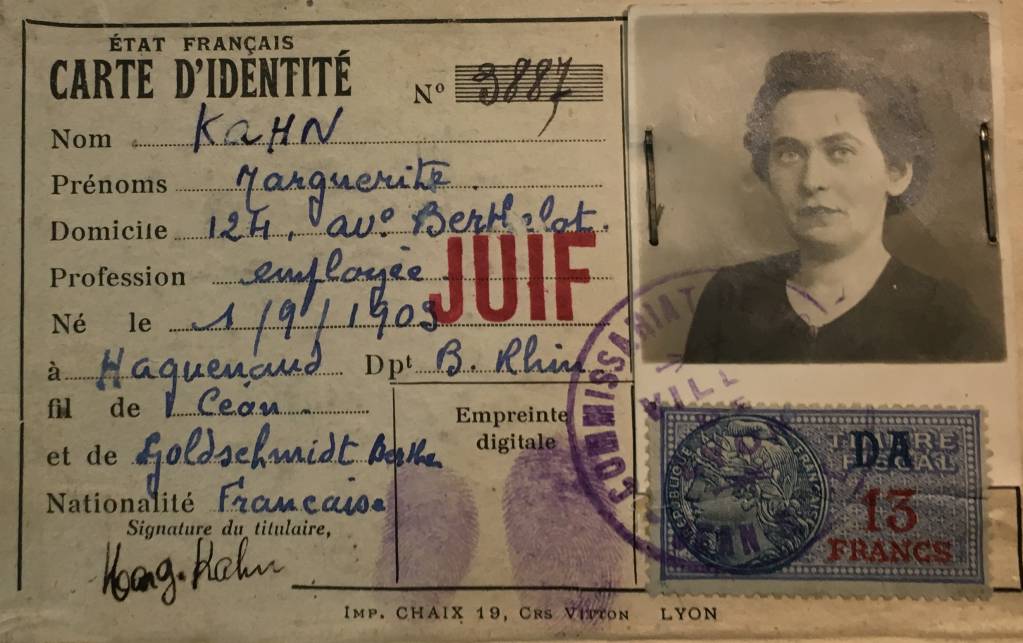 ÉTAT FRANÇAIS
CARTE D'IDENTITÉ
Nº 3887
Nom KAHN
Prénoms Marguerite
Domicile 124, av. Berthelot.
Profession employée
JUIF
Né le 1/9/1909
à Haguenaud Dpt B. Rhin
fil de Céan
et de Goldschmidt Berthe
Nationalité Francaise
Signature du titulaire,
Marg. Kahn
Empreinte
digitale
COMMISSARIAT
VILLE
RÉPUBLIQUE FRANÇAISE
DA
TIMBRE
FISCAL
13
FRANCS
IMP. CHAIX 19, CRS VITTON LYON